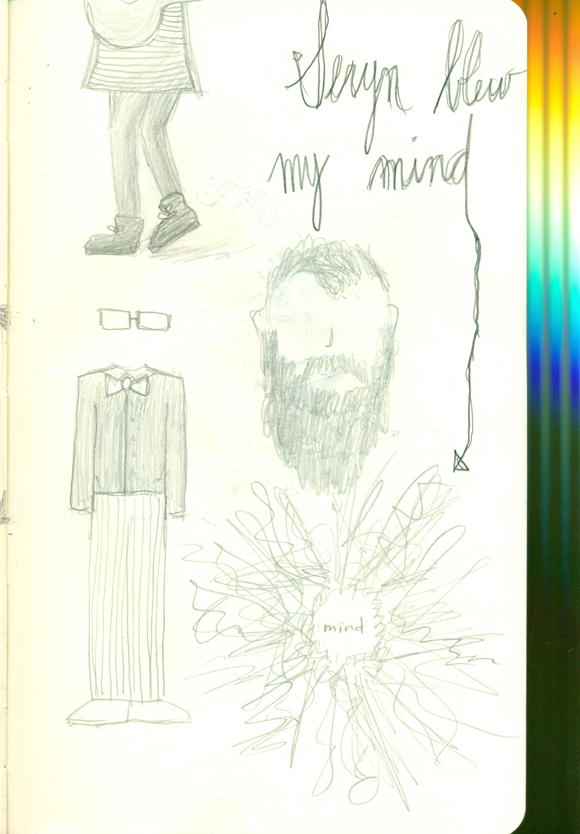 Seryn blew
my mind
mind